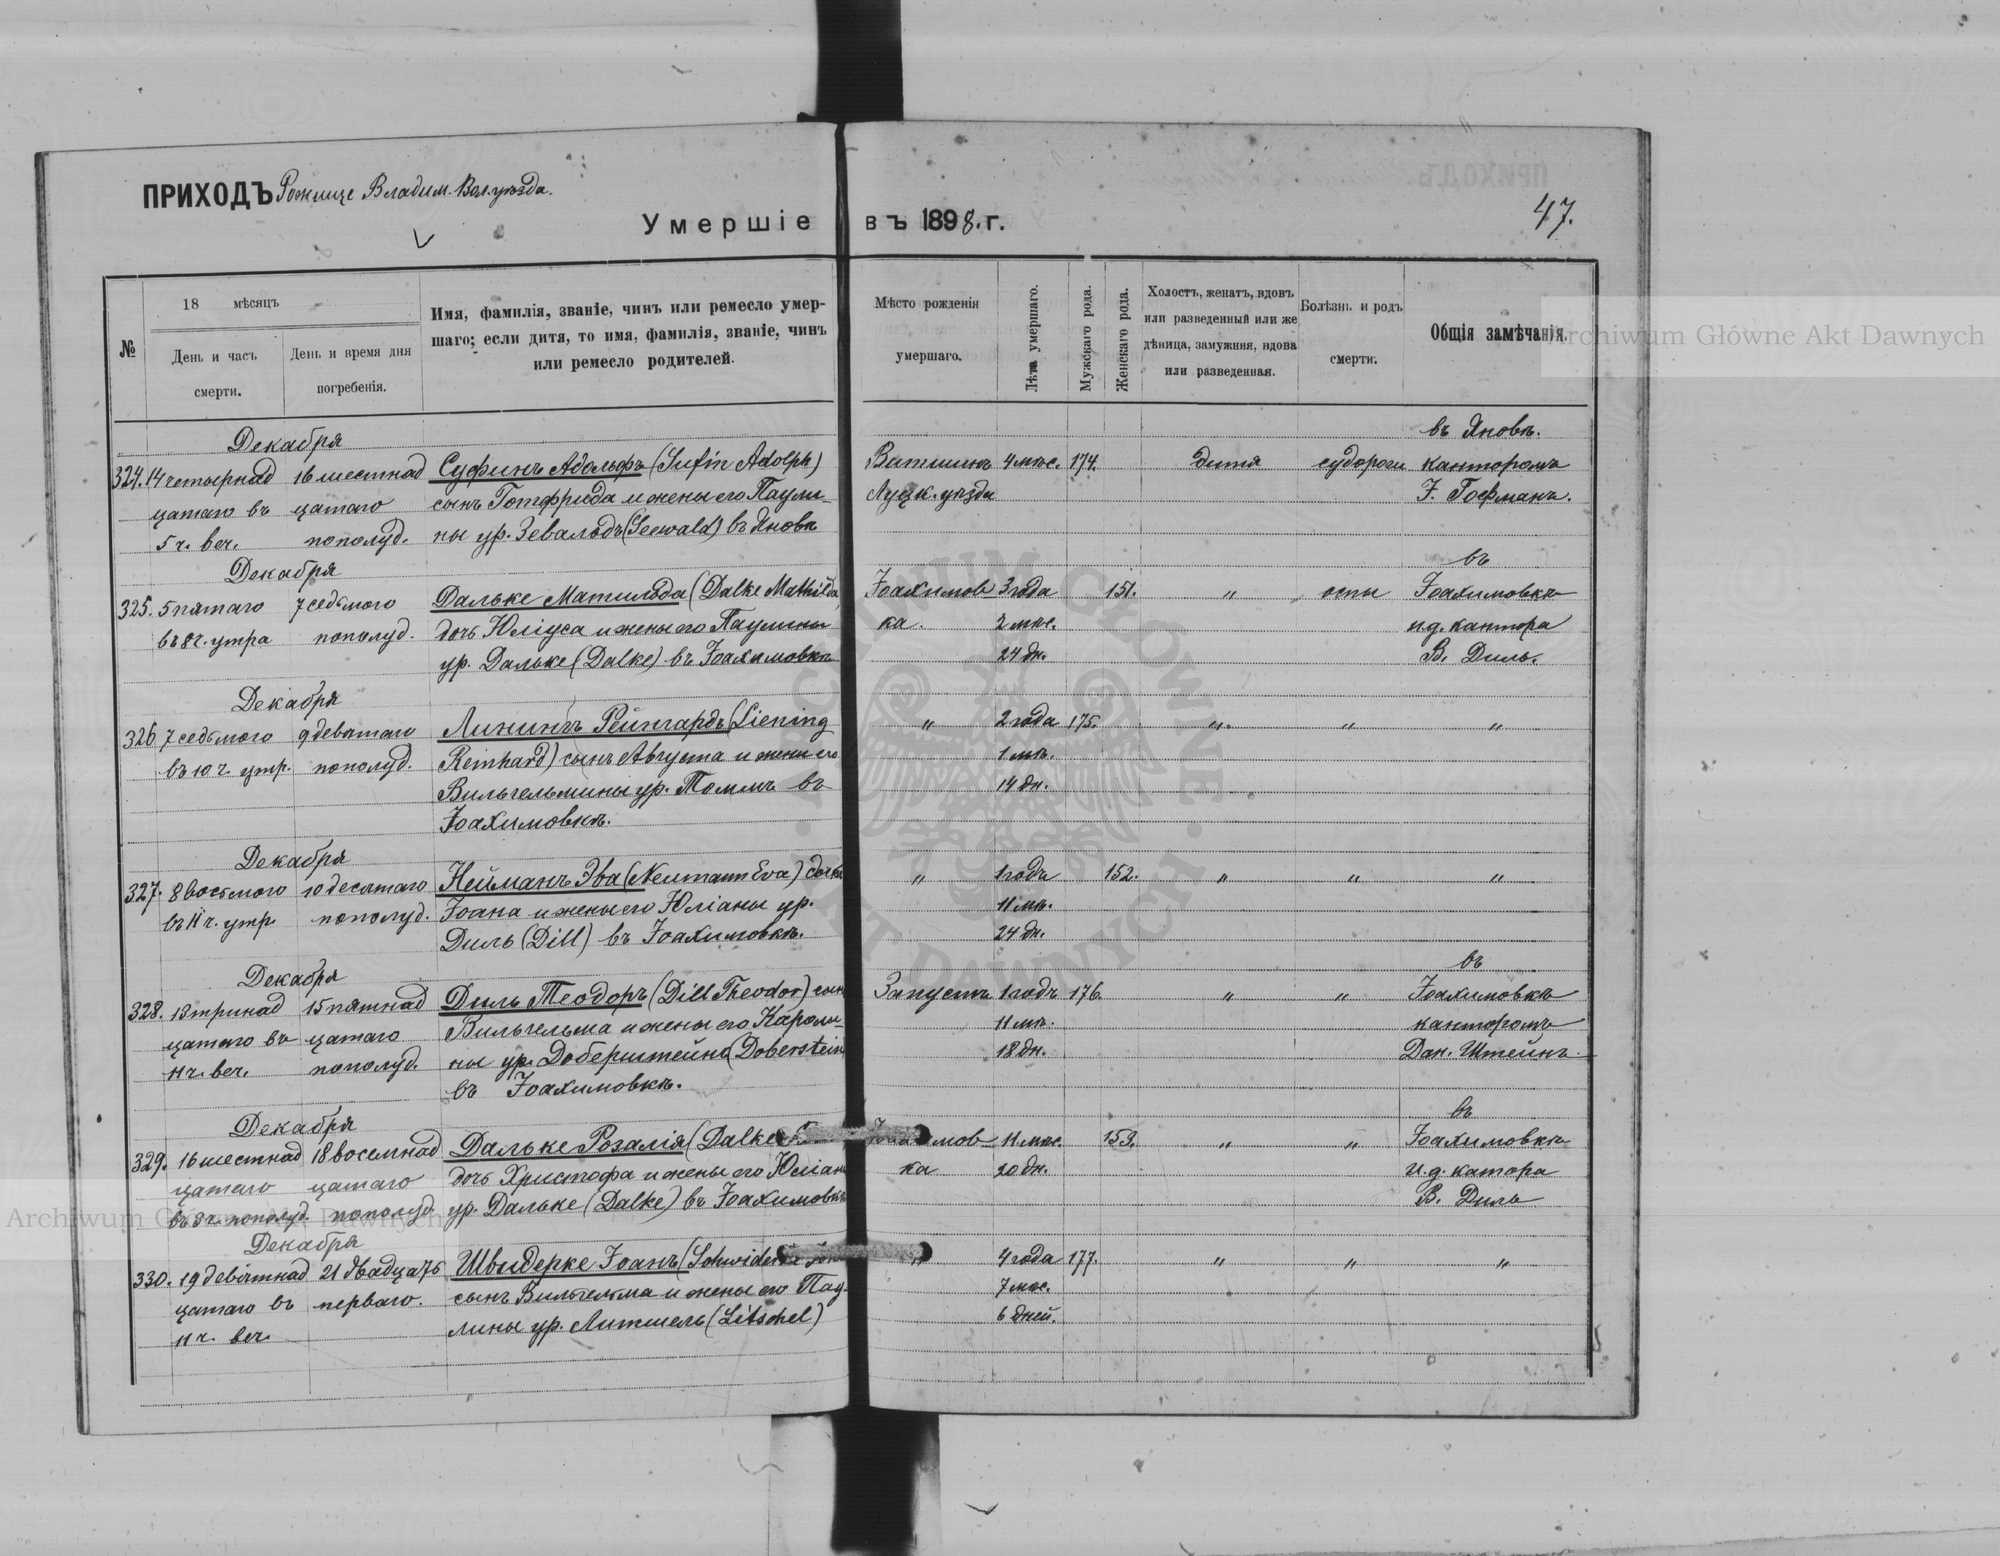 ПРИХОДЪ Рожище Владим. Вол. уѣзда.
Умершіе въ 1898. г.
47.
№
18 мѣсяцъ
День и часъ смерти.
День и время дня погребенія.
Имя, фамилія, званіе, чинъ или ремесло умер-
шаго; если дитя, то имя, фамилія, званіе, чинъ
или ремесло родителей.
Мѣсто рожденія
умершаго.
Лѣта умершаго.
Мужскаго рода.
Женскаго рода.
Холостъ, женатъ, вдовъ
или разведенный или же
дѣвица, замужняя, вдова
или разведенная.
Болѣзнь и родъ
смерти.
Общія замѣчанія.
Archiwum Główne Akt Dawnych
Декабря въ Яновкѣ.
324. 14 четырнад 16 шестнад Суфинъ Адольфъ (Sufin Adolph) 4 мѣс. 174. дитя судороги канторомъ
цатаго въ цатаго сынъ Готфрида и жены его Паули- Луцк. уѣзда Г. Гофманъ.
5 ч. веч. пополуд. ны ур. Зевальдъ (Seewald) въ Яновк
Декабря въ
325. 5 пятаго 7 седьмого Дальке Матильда (Dalke Mathilda) Іоахимов- 3 года 151. " оспы Іоахимовкѣ
въ 8 ч. утра пополуд. дочь Юліуса и жены его Паулины ка. 2 мѣс. и.д. кантора
ур. Дальке (Dalke) въ Іоахимовкѣ 24 дн. В. Диль.
Декабря
326 7 седьмого 9 девятаго Линингъ Рейнгардъ (Liening " 2 года 175. " " "
въ 10 ч. утр. пополуд. Reinhard) сынъ Августа и жены его 1 мѣ.
Вильгельмины ур. Томмъ въ 14 дн.
Іоахимовкѣ.
Декабря
327. 8 восьмого 10 десятаго Нейманъ Эва (Neumann Eva) дочь " 1 годъ 152. " " "
въ 11 ч. утр пополуд. Іоана и жены его Юліаны ур. 11 мѣ.
Диль (Dill) въ Іоахимовкѣ. 24 дн.
Декабря въ
328. 13 тринад 15 пятнад Диль Теодоръ (Dill Theodor) сынъ Запустъ 1 годъ 176. " " Іоахимовкѣ
цатаго въ цатаго Вильгельма и жены его Кароли- 11 мѣ. канторомъ
11 ч. веч. пополуд. ны ур. Доберштейнъ (Doberstein) 18 дн. Дан. Штейнъ.
въ Іоахимовкѣ.
Декабря въ
329. 16 шестнад 18 восемнад Дальке Розалія (Dalke Іоахимов- 11 мѣс. 153. " " Іоахимовкѣ
цатаго цатаго дочь Христофа и жены его Юліан ка 20 дн. и.д. катора
въ 3 ч. пополуд. пополуд. ур. Дальке (Dalke) въ Іоахимовкѣ В. Диль
Archiwum Główne Akt Dawnych
Декабря
330. 19 девятнад 21 двадцать Швидерке Іоанъ ( " 4 года 177. " " "
цатаго въ перваго. сынъ Вильгельма и жены его Пау- 7 мѣс.
11 ч. веч. лины ур. Литшель (Litschel) 6 дней.